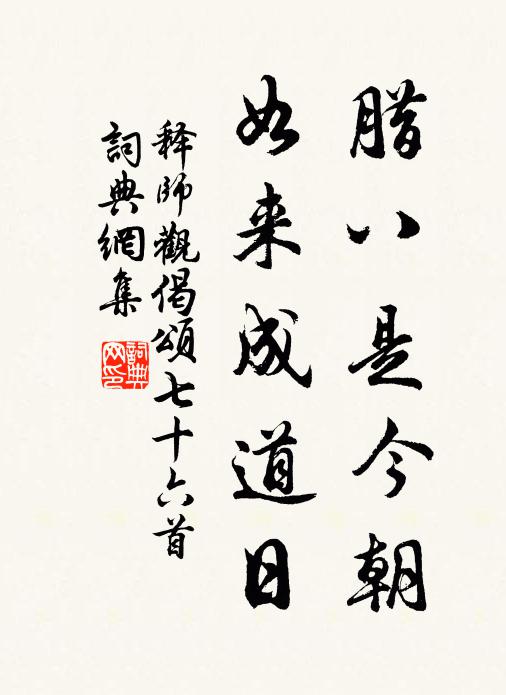 腊八是今朝
如来成道日
释師觀偈頌七十六首
詞典網集
詞典网印